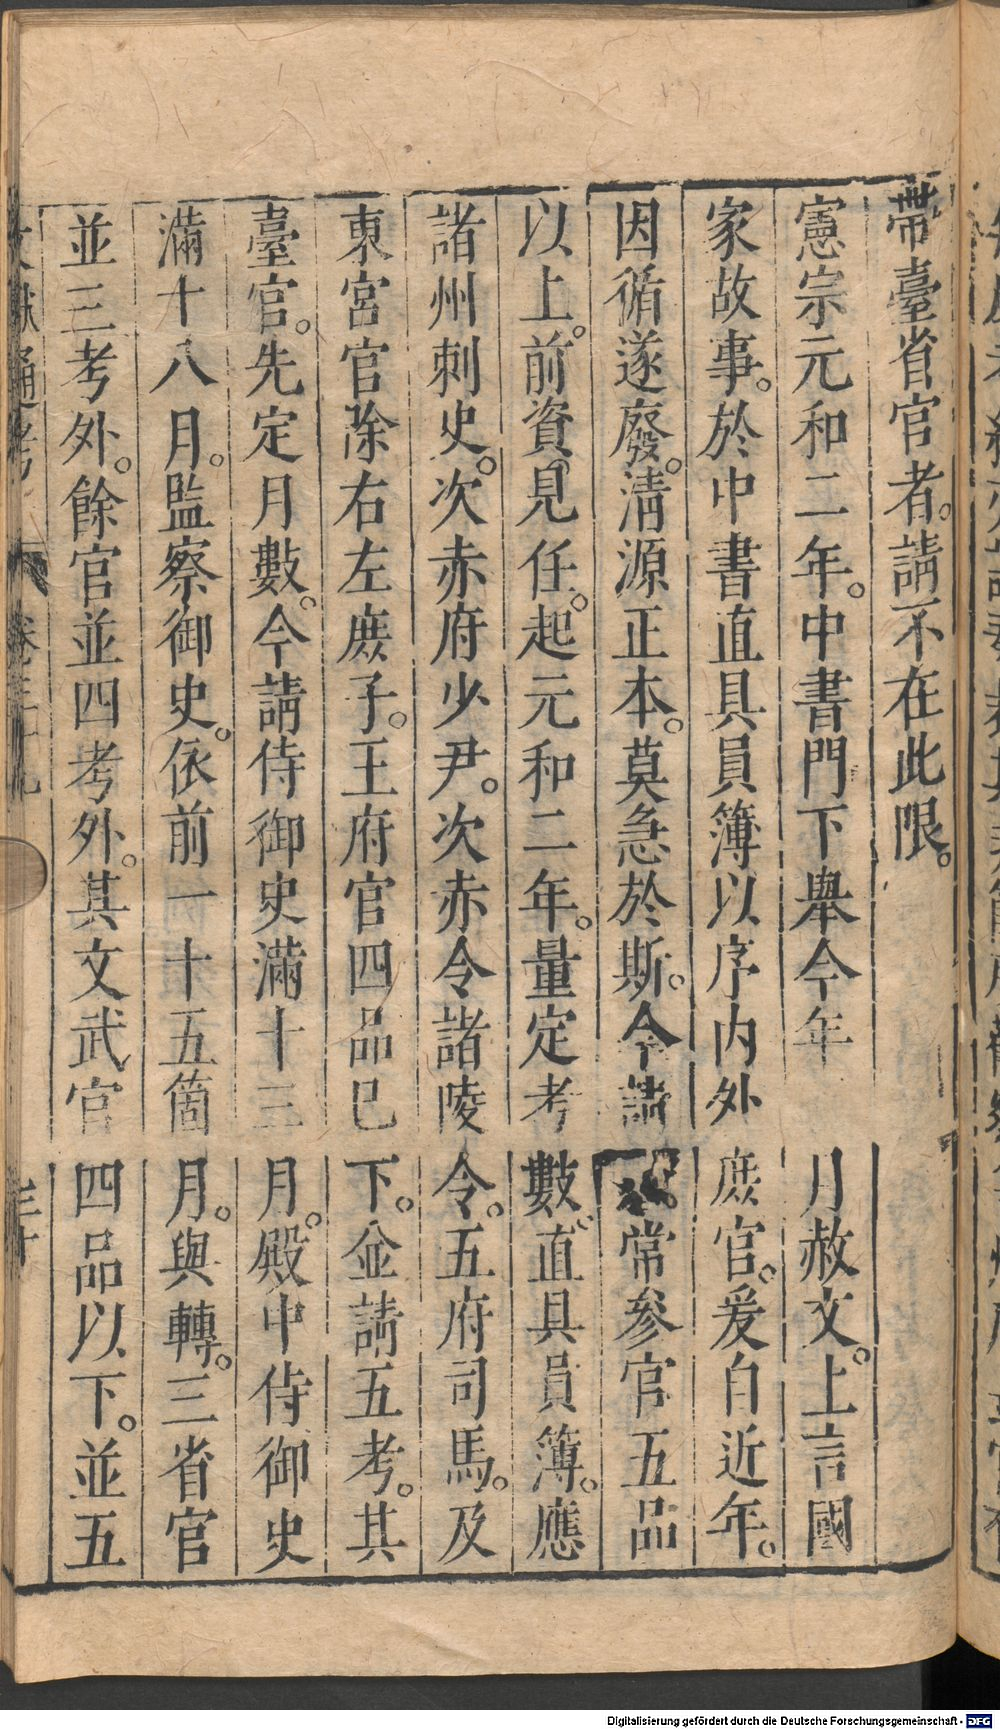 帶臺省官者。請不在此限。
憲宗元和二年。中書門下舉今年月赦文。上言國
家故事。於中書直具員簿以序内外庶官。爰自近年。
因循遂廢。淸源正本。莫急於斯。今請常参官五品
以上。前資。見任。起元和二年。量定考數。直具員簿。應
諸州刺史。次赤府少尹。次赤令諸陵令。五府司馬。及
東宮官除右左庶子。王府官四品已下。並請五考。其
臺官。先定月數。今請侍御史滿十三月。殿中侍御史
滿十八月。監察御史。依前一十五箇月。與轉。三省官
並三考外。餘官並四考外。其文武官四品以下。並五
文獻通考 卷三十九 三十
Digitalisierung gefördert durch die Deutsche Forschungsgemeinschaft - DFG